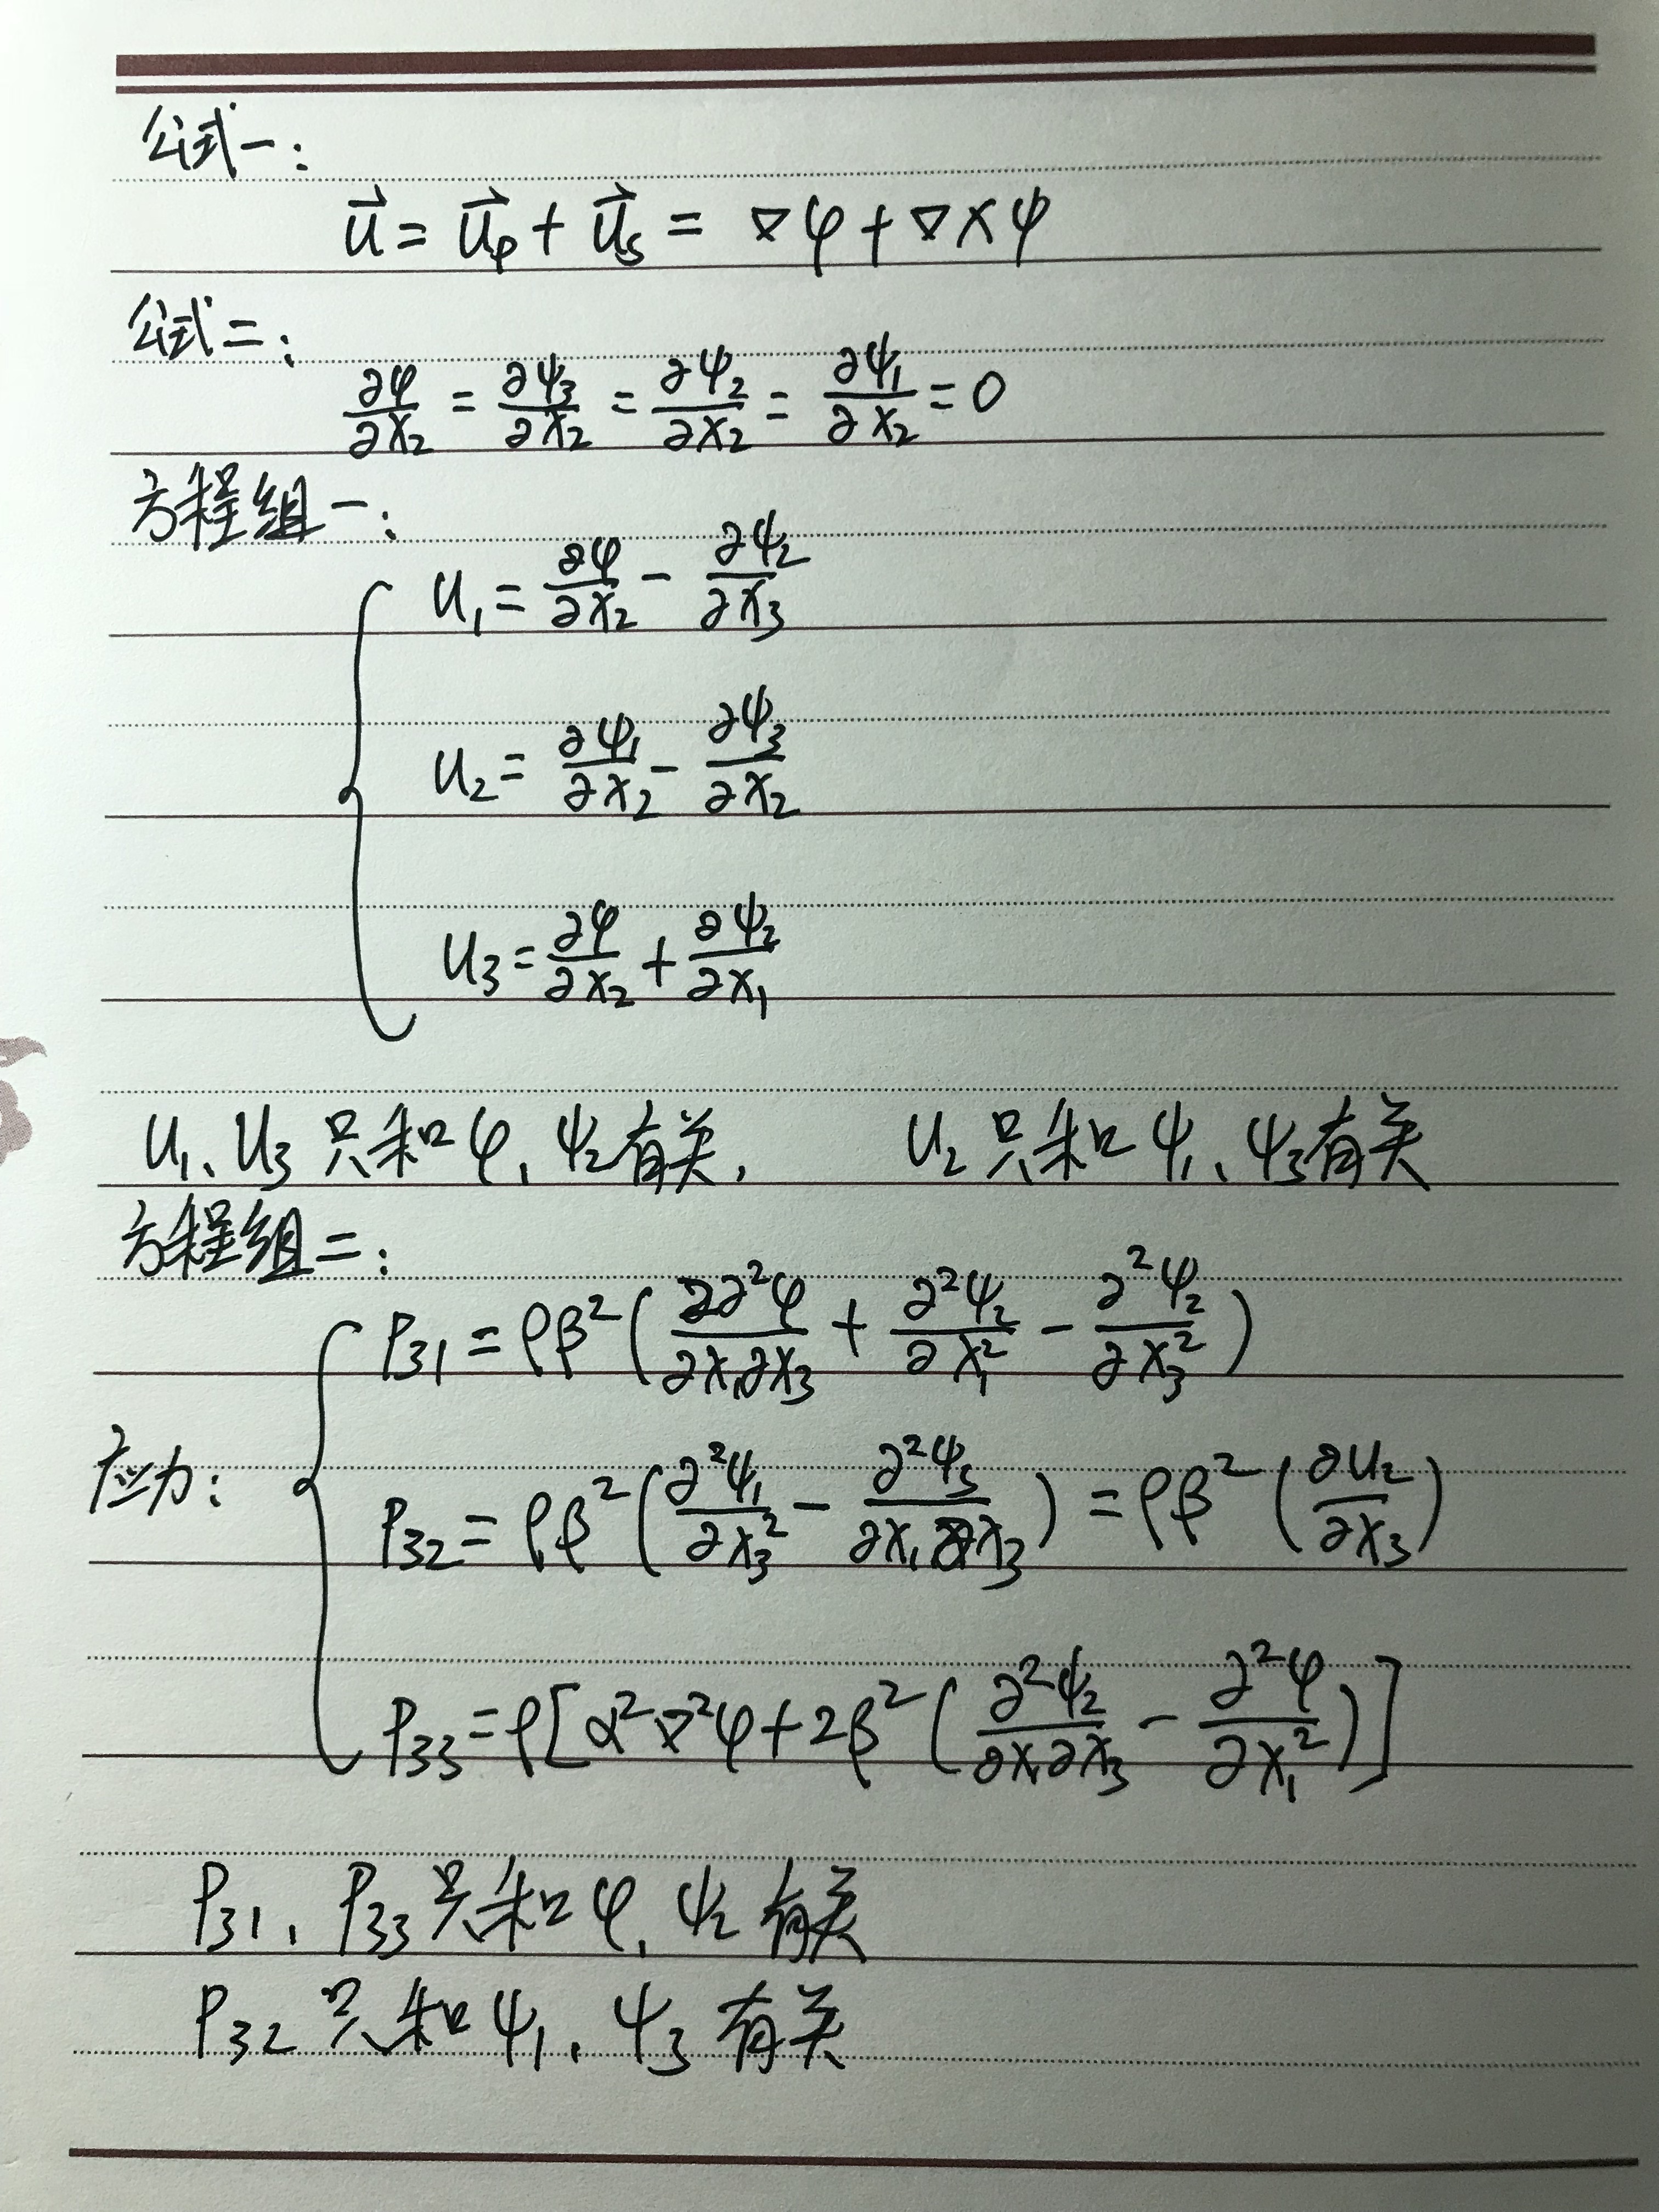 公式一：
$\vec{u} = \vec{u_p} + \vec{u_s} = \nabla \varphi + \nabla \times \psi$
公式二：
$\frac{\partial \varphi}{\partial x_2} = \frac{\partial \psi_3}{\partial x_2} = \frac{\partial \psi_2}{\partial x_2} = \frac{\partial \psi_1}{\partial x_2} = 0$
方程组一：
$u_1 = \frac{\partial \varphi}{\partial x_2} - \frac{\partial \psi_2}{\partial x_3}$
$u_2 = \frac{\partial \psi_1}{\partial x_2} - \frac{\partial \psi_3}{\partial x_2}$
$u_3 = \frac{\partial \varphi}{\partial x_2} + \frac{\partial \psi_2}{\partial x_1}$
$u_1$、$u_3$ 只和 $\varphi$、$\psi_2$ 有关， $u_2$ 只和 $\psi_1$、$\psi_3$ 有关
方程组二：
$P_{31} = \rho\beta^2 ( \frac{2\partial^2 \varphi}{\partial x_1 \partial x_3} + \frac{\partial^2 \psi_2}{\partial x_1^2} - \frac{\partial^2 \psi_2}{\partial x_3^2} )$
应力： $P_{32} = \rho\beta^2 ( \frac{\partial^2 \psi_1}{\partial x_3^2} - \frac{\partial^2 \psi_3}{\partial x_1 \partial x_3} ) = \rho\beta^2 ( \frac{\partial u_2}{\partial x_3} )$
$P_{33} = \rho [ \alpha^2 \nabla^2 \varphi + 2\beta^2 ( \frac{\partial^2 \psi_2}{\partial x_1 \partial x_3} - \frac{\partial^2 \varphi}{\partial x_1^2} ) ]$
$P_{31}$、$P_{33}$ 只和 $\varphi$、$\psi_2$ 有关
$P_{32}$ 只和 $\psi_1$、$\psi_3$ 有关